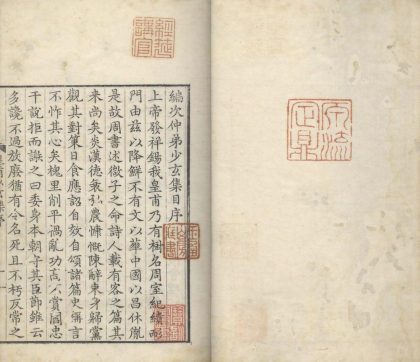 經筵講官
編次仲弟少玄集目序
上帝發祥錫我皇甫乃有樹名周室紀績彤
門由茲以降鮮不有文以華中國以昌休胤
是故周書述微子之命詩人載有客之篇其
来尚矣炎漢德衰弘農慷慨陳辭束身歸黨
觀其對策日食應詔自效自頌諸篇史稱言
不怍其心矣槐里削平禍亂功高不賞閻忠
干說拒而謙之曰委身本朝守其臣節雖云
多讒不過放廢猶有令名死且不朽反常之